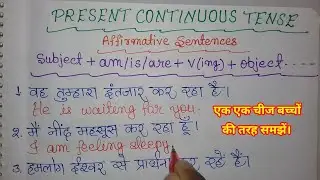 PRESENT CONTINUOUS TENSE
Affirmative Sentences
Subject + am/is/are + v(ing) + object.....
1. वह तुम्हारा इंतजार कर रहा है।
He is waiting for you.
2. मैं नींद महसूस कर रहा हूँ।
I am feeling sleepy.
3. हमलोग ईश्वर से प्रार्थना कर रहे हैं।
एक एक चीज बच्चों
की तरह समझें।